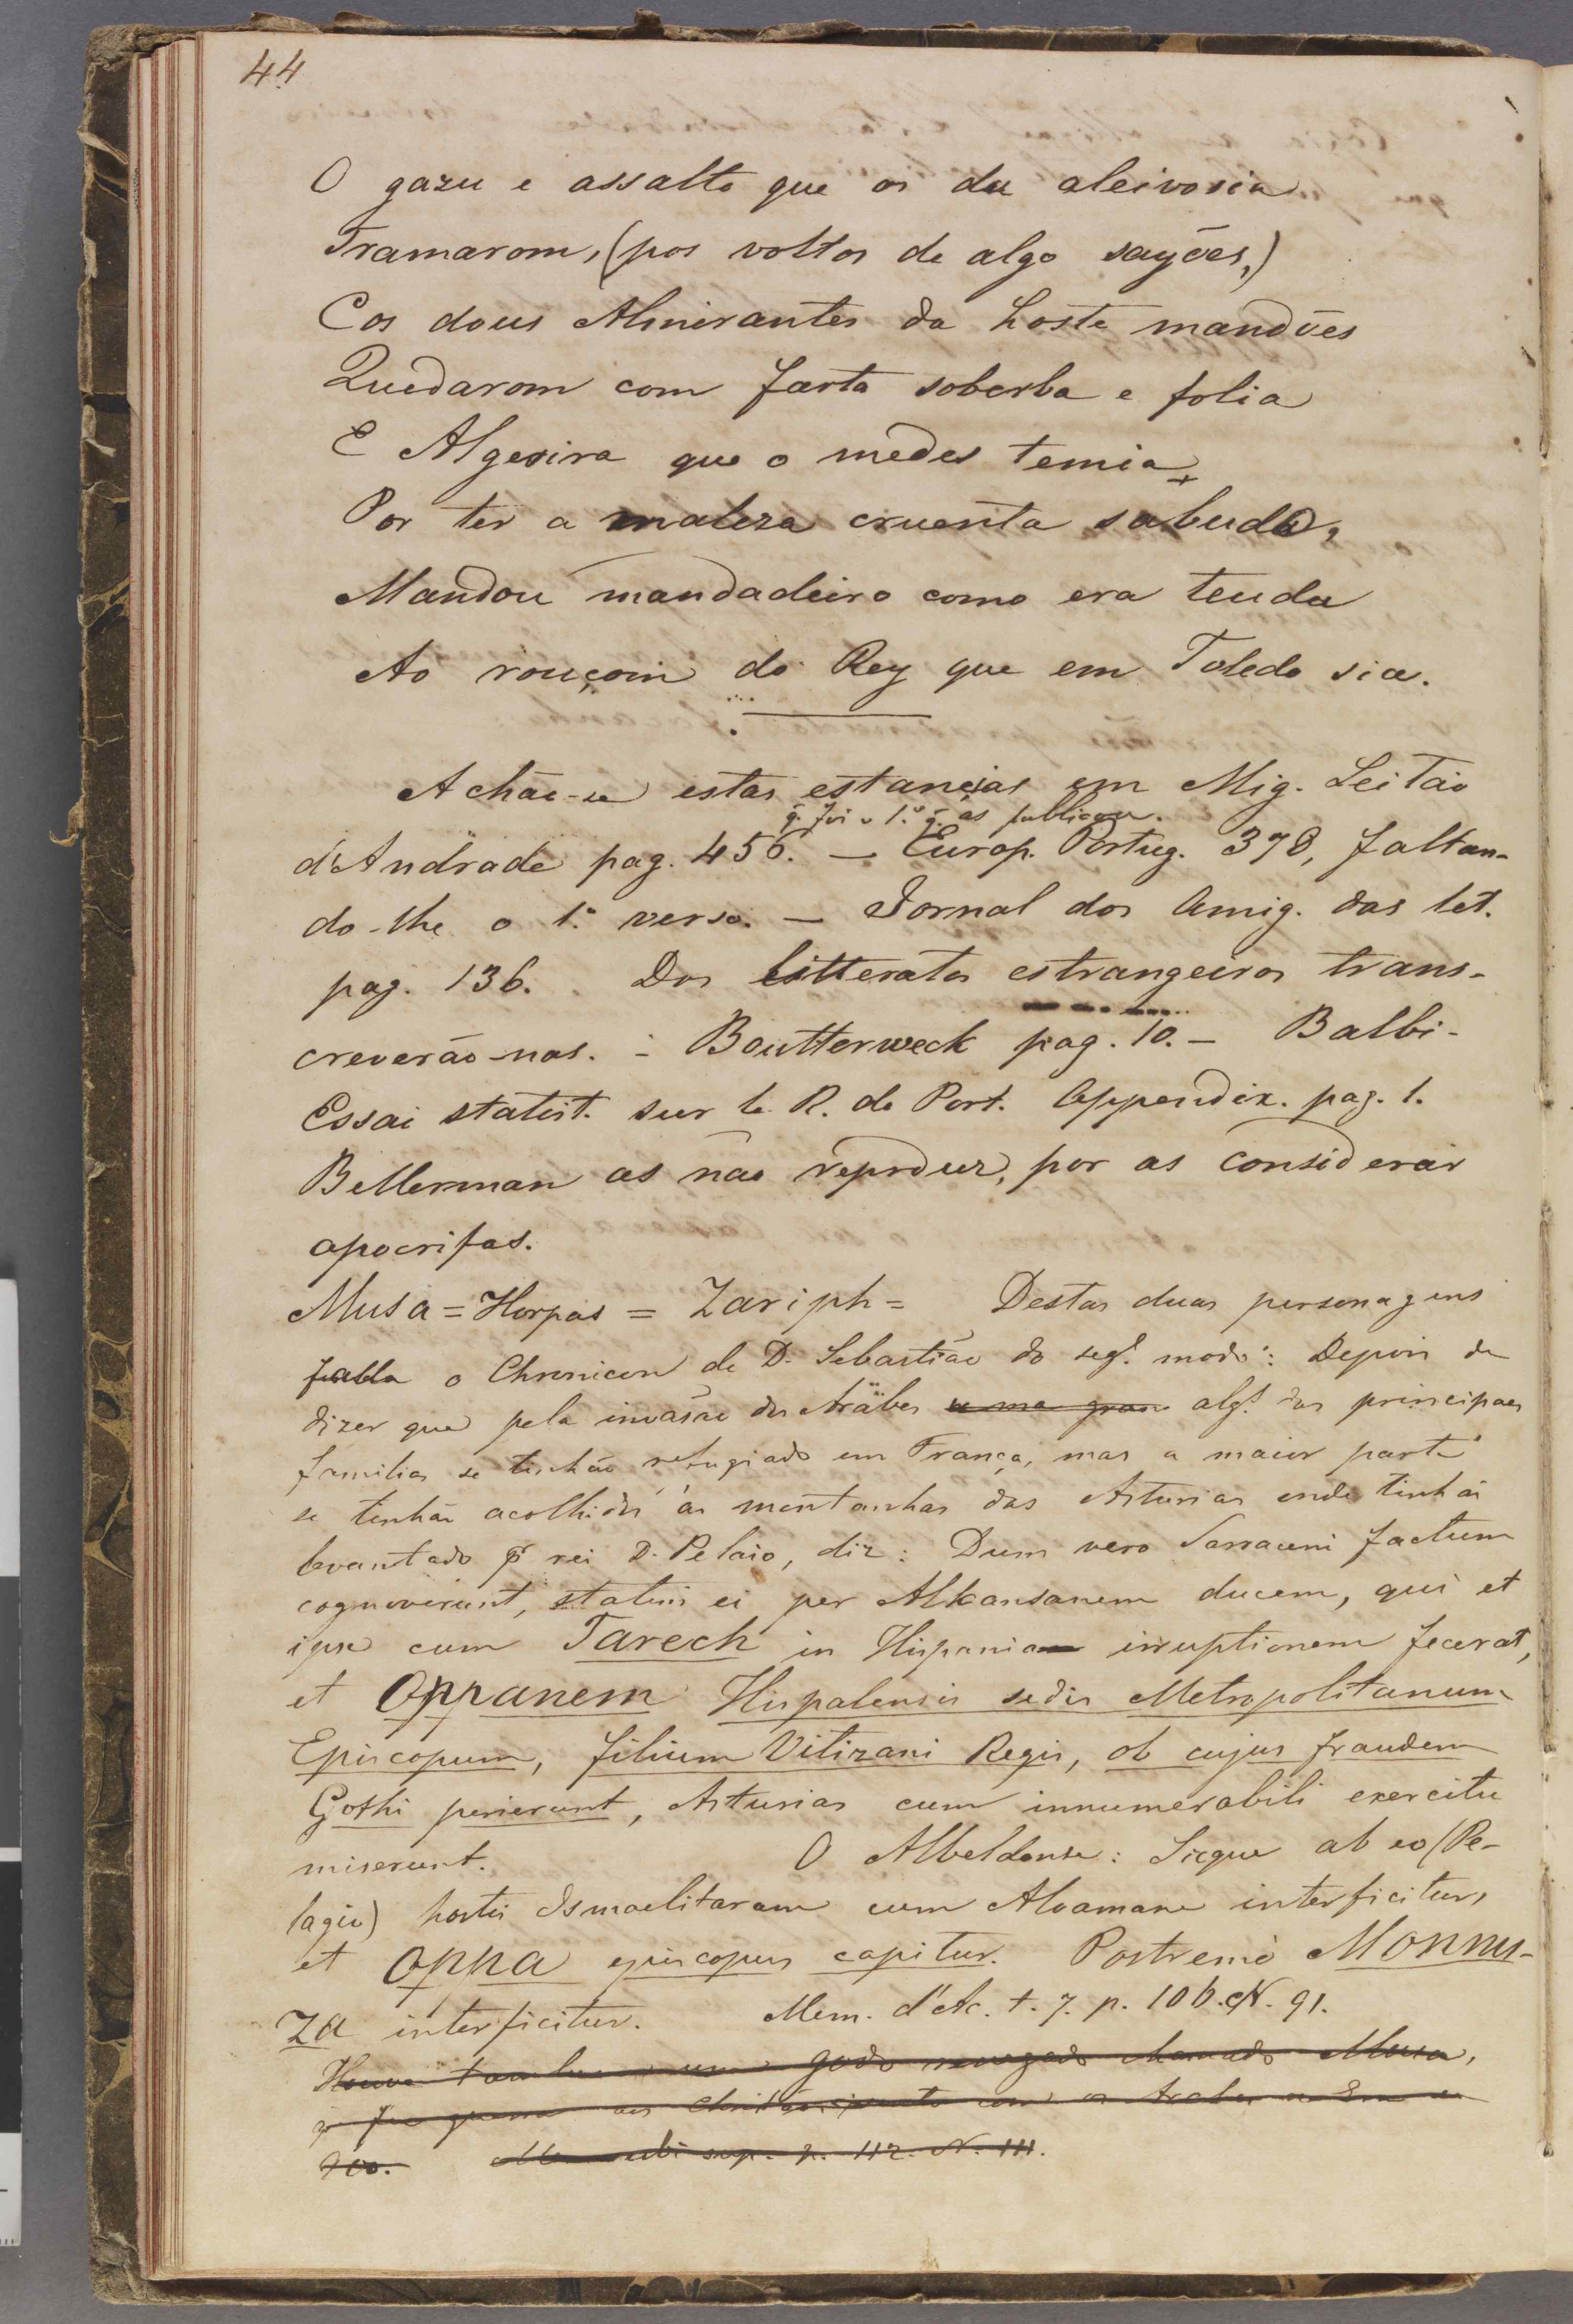 44
O gazu e assalto que os da aleivosia
Tramarom, (pos voltos de algo sayões,)
Cos dous Almirantes da hoste mandões
Quedarom com farta soberba e folia
E Algezira que o medes temia
Por ter a maleza cruenta sabuda,
Mandou mandadeiro como era teuda
Ao rouçom do Rey que em Toledo sia.
Achão-se estas estancias em Mig. Leitão
q. foi o 1.º q. as publicou.
d'Andrade pag. 456. — Europ. Portug. 378, faltan-
do-lhe o 1.º verso. — Jornal dos Amig. das let.
pag. 136. Dos litteratos estrangeiros trans-
creverão-nas. - Boutterweck pag. 10. - Balbi-
Essai statist. sur le R. de Port. Appendix. pag. 1.
Bellerman as não reproduz, por as considerar
apocrifas.
Musa = Horpas = Zariph = Destas duas personagens
falla o Chronicon de D. Sebastião do seg. modo: Depois de
dizer que pela invasão dos Arabes alg. das principaes
familias se tinhão refugiado em França, mas a maior parte
se tinhão acolhido ás montanhas das Asturias onde tinhão
levantado p. rei D. Pelaio, diz: Dum vero Sarraceni factum
cognoverunt, statim ei per Alkansanem ducem, qui et
ipse cum Tarech in Hispania irruptionem fecerat,
et Oppanem Hispalensis sedis Metropolitanum
Episcopum, filium Vitizani Regis, ob cujus fraudem
Gothi perierunt, Asturias cum innumerabili exercitu
miserunt. O Albeldense: Sicque ab eo (Pe-
lagio) hostis Ismaelitarum cum Alcamane interficitur,
et Oppa episcopus capitur. Postremo Monnu-
za interficitur. Mem. d'Ac. t. 7. p. 106. N. 91.
godo renegado chamado Musa,
900. ubi sup. p. 112. N. 111.